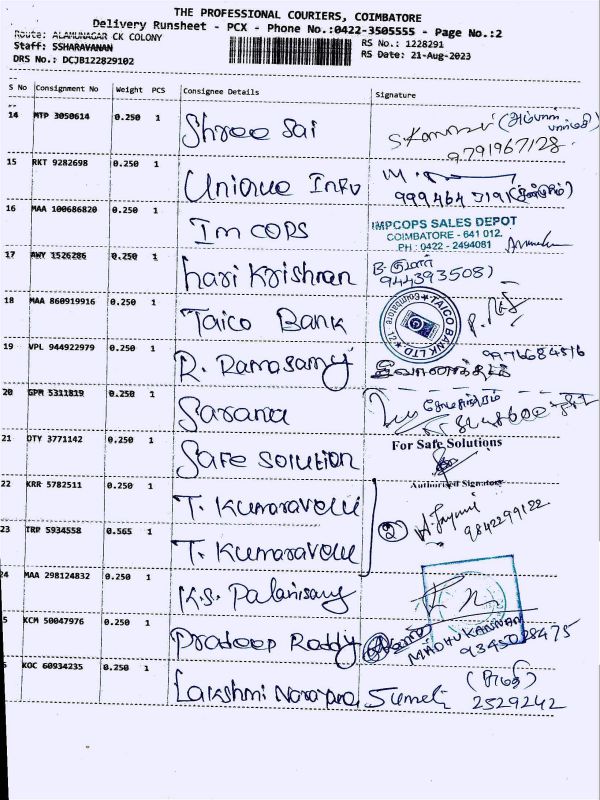 THE PROFESSIONAL COURIERS, COIMBATORE
Delivery Runsheet - PCX - Phone No.:0422-3505555 - Page No.:2
Route: ALAMUNAGAR CK COLONY
RS No.: 1228291
Staff: SSHARAVANAN
RS Date: 21-Aug-2023
DRS No.: DCJB122829102
S No Consignment No Weight PCS Consignee Details Signature
14 MTP 3050614 0.250 1 Shree Sai
9791967128
15 RKT 9282698 0.250 1 Unique Info
16 MAA 100686820 0.250 1 Imcops
IMPCOPS SALES DEPOT
COIMBATORE - 641 012.
PH : 0422 - 2494081
17 AWY 1526286 0.250 1 hari Krishnan
B. குமார்
944393508)
18 MAA 860919916 0.250 1 Taico Bank
TAICO BANK LTD
Coimbatore
19 VPL 944922979 0.250 1 R. Ramasamy
9976684516
20 GPM 5311819 0.250 1 Sarana
21 OTY 3771142 0.250 1 Safe Solution
For Safe Solutions
Authorised Signatory
22 KRR 5782511 0.250 1 T. Kumaravelu
23 TRP 5934558 0.565 1 T. Kumaravelu
② 9842299122
24 MAA 298124832 0.250 1 K.S. Palanisamy
5 KCM 50047976 0.250 1 Pradeep Reddy
MADHUKANNAN
9345028475
KOC 60934235 0.250 1 Lakshmi Narayana
2529242